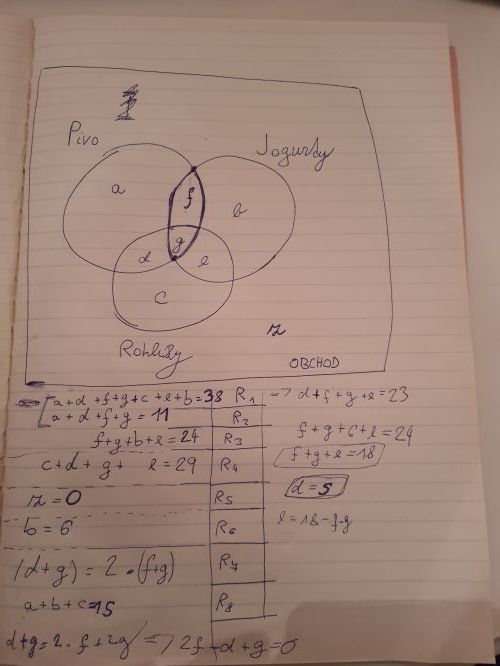 Pivo
Jogurty
a
f
b
g
d
e
c
z
Rohlíky
OBCHOD
a+d+f+g+c+e+b=38 R1 => d+f+g+e=23
a+d+f+g=11 R2
f+g+b+e=24 R3 f+g+c+e=24
c+d+g+ e=29 R4 f+g+e=18
z=0 R5 d=5
b=6 R6 e=18-f-g
(d+g)=2·(f+g) R7
a+b+c=15 R8
d+g=2·f+2g => 2f-d+g=0